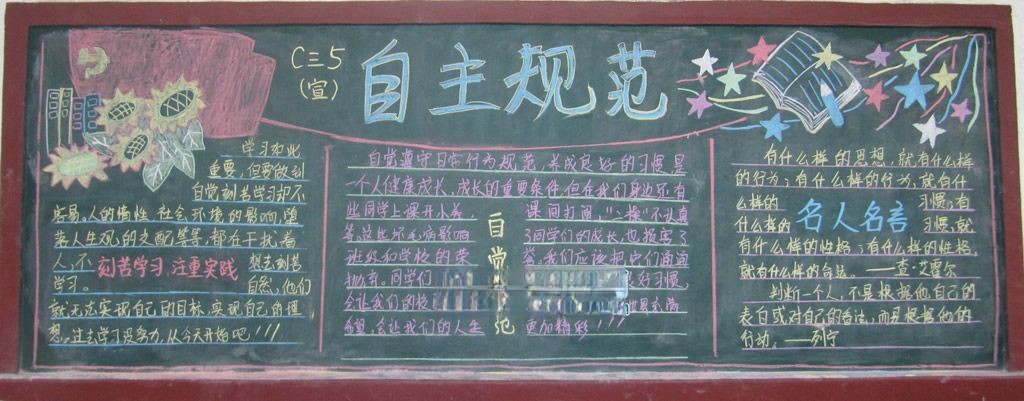 C三5
(宣)
自主规范
学习如此
重要,但要做到
自觉刻苦学习却不
容易,人的惰性 社会环境的影响,堕
落人生观的支配等等,都在干扰着
人,不
想去刻苦
刻苦学习,注重实践
学习。
自然,他们
就无法实现自己的目标,实现自己的理
想。过去学习没努力,从今天开始吧!!!
自觉遵守日常行为规范,养成良好的习惯,是
一个人健康成长、成长的重要条件,但在我们身边还有
些同学上课开小差, 课间打闹,“二操”不认真
等,这些坏毛病影响 了同学们的成长,也损害了
班级和学校的荣 誉,我们应该把它们通通
抛弃。同学们 好习惯,
会让我们的校 世界充满
希望,会让我们的人生 更加精彩!!!
自觉
范
有什么样的思想,就有什么样
的行为;有什么样的行为,就有什
么样的 习惯;有
什么样的 习惯,就
名人名言
有什么样的性格;有什么样的性格,
就有什么样的命运。——查·艾霍尔
判断一个人,不是根据他自己的
表白或对自己的看法,而是根据他的
行动。——列宁